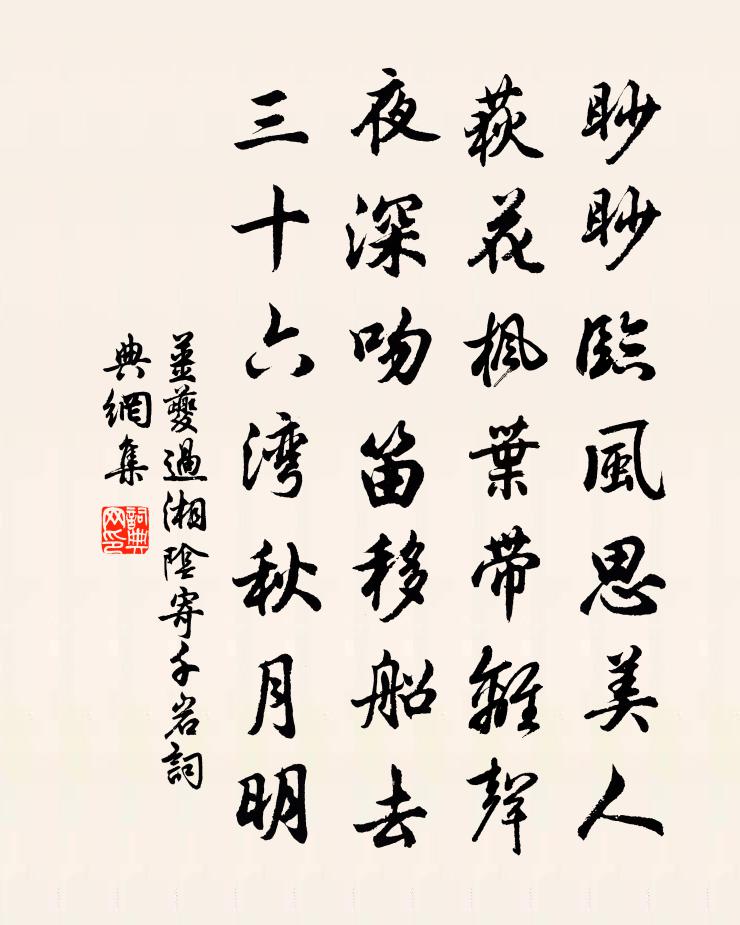 眇眇臨風思美人
荻花楓葉帶離聲
夜深吹笛移船去
三十六湾秋月明
薑夔過湘陰寄千岩詞
典網集
詞典
网印